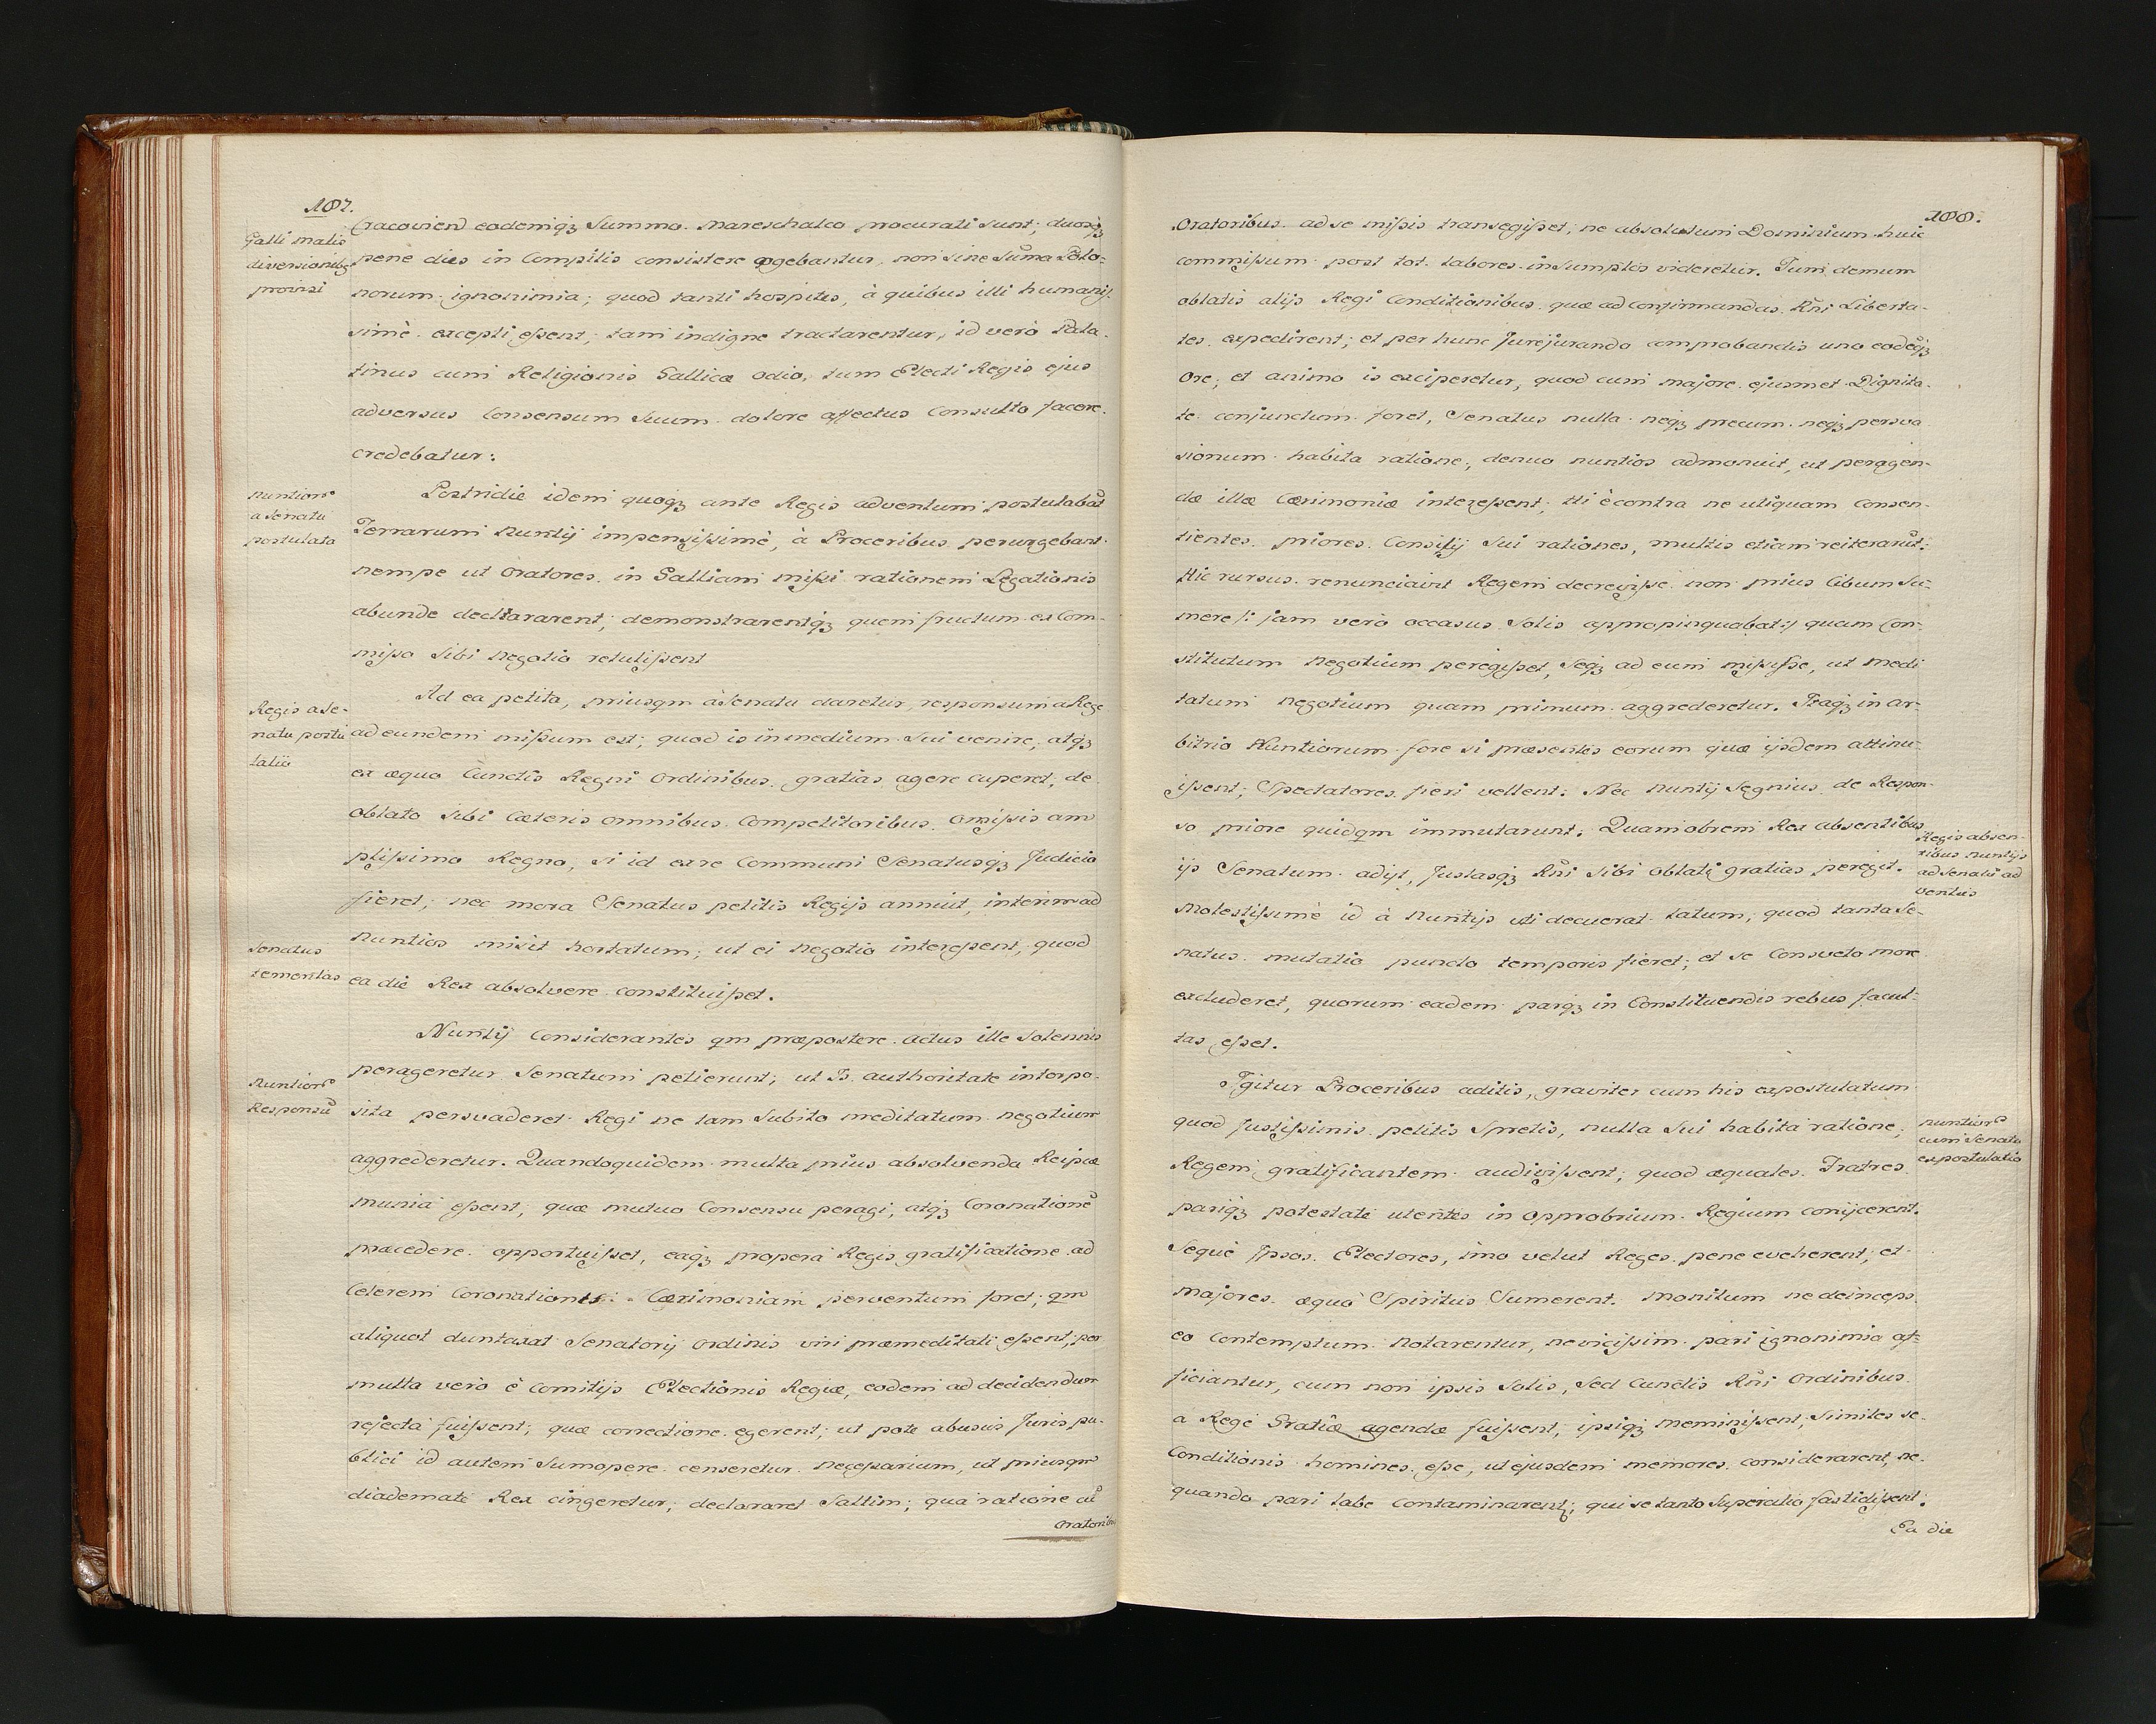 187.
Cracovien) eodemq́ꝫ Summo Mareschalco procurati sunt; duosq́ꝫ
Galli malis
diversionibꝫ
provisi
pene dies in Compitis consistere cogebantur, non sine Suma Polo-
norum ignonimia; quod tanti hospites, à quibus illi humanis-
simè excepti essent; tam indigne tractarentur, id verò Pala-
tinus cum Religionis Gallicæ odio, tum Electi Regis ejus
adversus Consensum Suum dolore affectus Consulto facere
credebatur:
Nuntiorꝫ
a Senatu
postulata
Postridie idem quoqꝫ ante Regis adventum postulabāt
Terrarum Nuntij impensissimè, à Proceribus perurgebant
nempe ut Oratores in Galliam missi rationem Legationis
abunde declararent; demonstrarentqꝫ quem fructum ex Com-
misso Sibi Negotio retulissent
Regis a Se-
natu postu
latio
Ad ea petita, priusqm à Senatu daretur responsum a Rege
ad eundem missum est; quod is in medium Sui venire, atqꝫ
ex æquo Cunctis Regni Ordinibus gratias agere cuperet, de
oblato Sibi Cæteris omnibus Competitoribus omissis am
plissimo Regno, si id ex re Communi Senatusqꝫ Judicio
fieret; nec mora Senatus petitis Regijs annuit, interim ad
Senatus
temeritas
nuntios misit hortatum; ut ei Negotio interessent, quod
ea die Rex absolvere constituisset.
Nuntij Considerantes qm præpostere Actus ille Solennis
Nuntiorꝫ
Responsū
perageretur Senatum petierunt; ut Is authoritate interpo-
sita persvaderet Regi ne tam Subito meditatum negotium
aggrederetur. Quandoquidem multa prius absolvenda Reipcæ
munia essent, quæ mutuo Consensu peragi, atqꝫ Coronationē
præcedere opportuisset, eaqꝫ propera Regis gratificatione ad
Celerem Coronationis Cærimoniam perventum foret; qm
aliquot duntaxat Senatorij Ordinis viri præmeditati essent; per
multa verò è Comitijs Electionis Regiæ, eodem ad decidendum
rejecta fuissent; quæ correctione egerent; ut pote abusus Juris pu-
blici id autem Sumopere censeretur necessarium, ut priusqm
diademate Rex cingeretur; declararet Saltim; qua ratione cū
Oratoribus
188.
Oratoribus ad se missis transegisset; ne absolutum Dominium huic
commissum post tot labores insumptos videretur. Tum demum
oblatis alijs Regi Conditionibus quæ ad Confirmandas Rñi Liberta-
tes expedirent; et per hunc Jurejurando comprobandis uno eodēqꝫ
Ore, et animo is exciperetur, quod cum majore ejusmet Dignita-
te conjunctum foret, Senatus nulla neqꝫ precum neqꝫ persva
sionum habita ratione, denuo nuntios admonuit, ut peragen-
dæ illæ Cærimoniæ interessent; Hi è contra ne utiquam Consen-
tientes priores Consilij Sui rationes, multis etiam reiterarūt:
Hic rursus renunciavit Regem decrevisse non prius Cibum Su-
mere /: jam verò occasus Solis appropinquabat :/ quam Con-
stitutum Negotium peregisset, Seqꝫ ad eum misisse, ut medi
tatum Negotium quam primum aggrederetur. Itaqꝫ in ar-
bitrio Nuntiorum fore si præsentes eorum quæ ijsdem attinu-
issent; Spectatores fieri vellent: Nec Nuntij Segnius de Respon-
so priore quidqm immutarunt. Quamobrem Rex absentibus
Regis absen-
tibus Nuntijs
ad Senatū ad
ventus
ijs Senatum adijt, Justasqꝫ Rñi Sibi oblati gratias peregit.
Molestissimè id à Nuntijs uti decuerat latum; quod tanta Se-
natus mutatio puncto temporis fieret; et se Consveto more
excluderet, quorum eadem parqꝫ in Constituendis rebus facul-
tas esset.
Igitur Proceribus aditis, graviter cum his expostulatum
Nuntiorꝫ
cum Senatu
expostulatio
quod Justissimis petitis Spretis, nulla Sui habita ratione,
Regem gratificantem audivissent; quod æquales Fratres
pariqꝫ potestate utentes in Opprobrium Regium conijcerent.
Sequè Ipsos Electores, imo velut Reges pene eveherent, et
majores æquò Spiritus Sumerent. Monitum ne deinceps
eo Contemptum Notarentur, ne vicissim pari ignonimia af-
ficiantur, cum non ipsis Solis, Sed Cunctis Rñi Ordinibus
a Rege Gratiæ agendæ fuissent, ipsiqꝫ meminissent, Similes se
Conditionis homines esse, ut ejusdem memores considerarent, ne
quando pari labe Contaminarentꝫ, qui se tanto Supercilio fastidissent.
Ea die